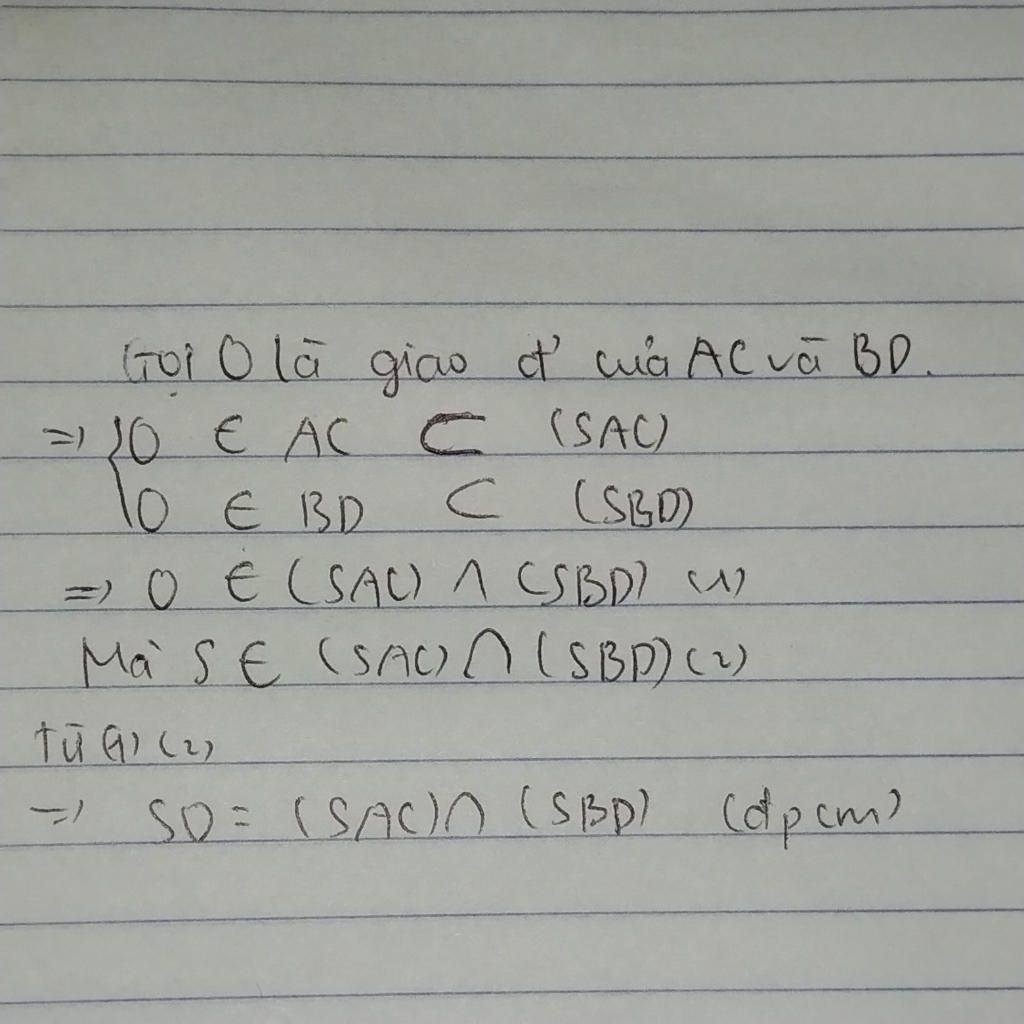 Gọi O là giao đ' của AC và BD.
=> { O ∈ AC ⊂ (SAC)
O ∈ BD ⊂ (SBD)
=> O ∈ (SAC) ∩ (SBD) (1)
Mà S ∈ (SAC) ∩ (SBD) (2)
Từ (1) (2)
=> SO = (SAC) ∩ (SBD) (đpcm)